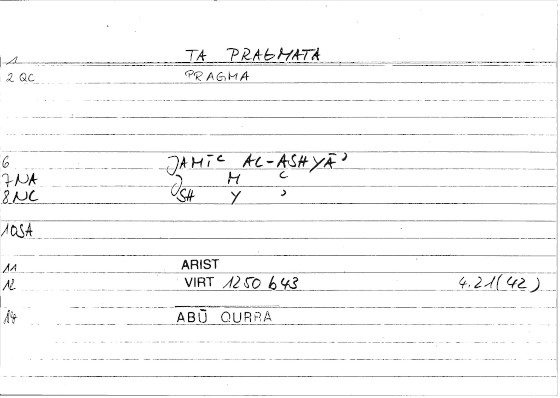 1 TA PRAGMATA
2 QC PRAGMA
6 JAMĪC AL-ASHYĀʾ
7 NA J M C
8 NC SH Y ʾ
10 SA
11 ARIST
12 VIRT 1250 b43 4.21(42)
14 ABŪ QURRA